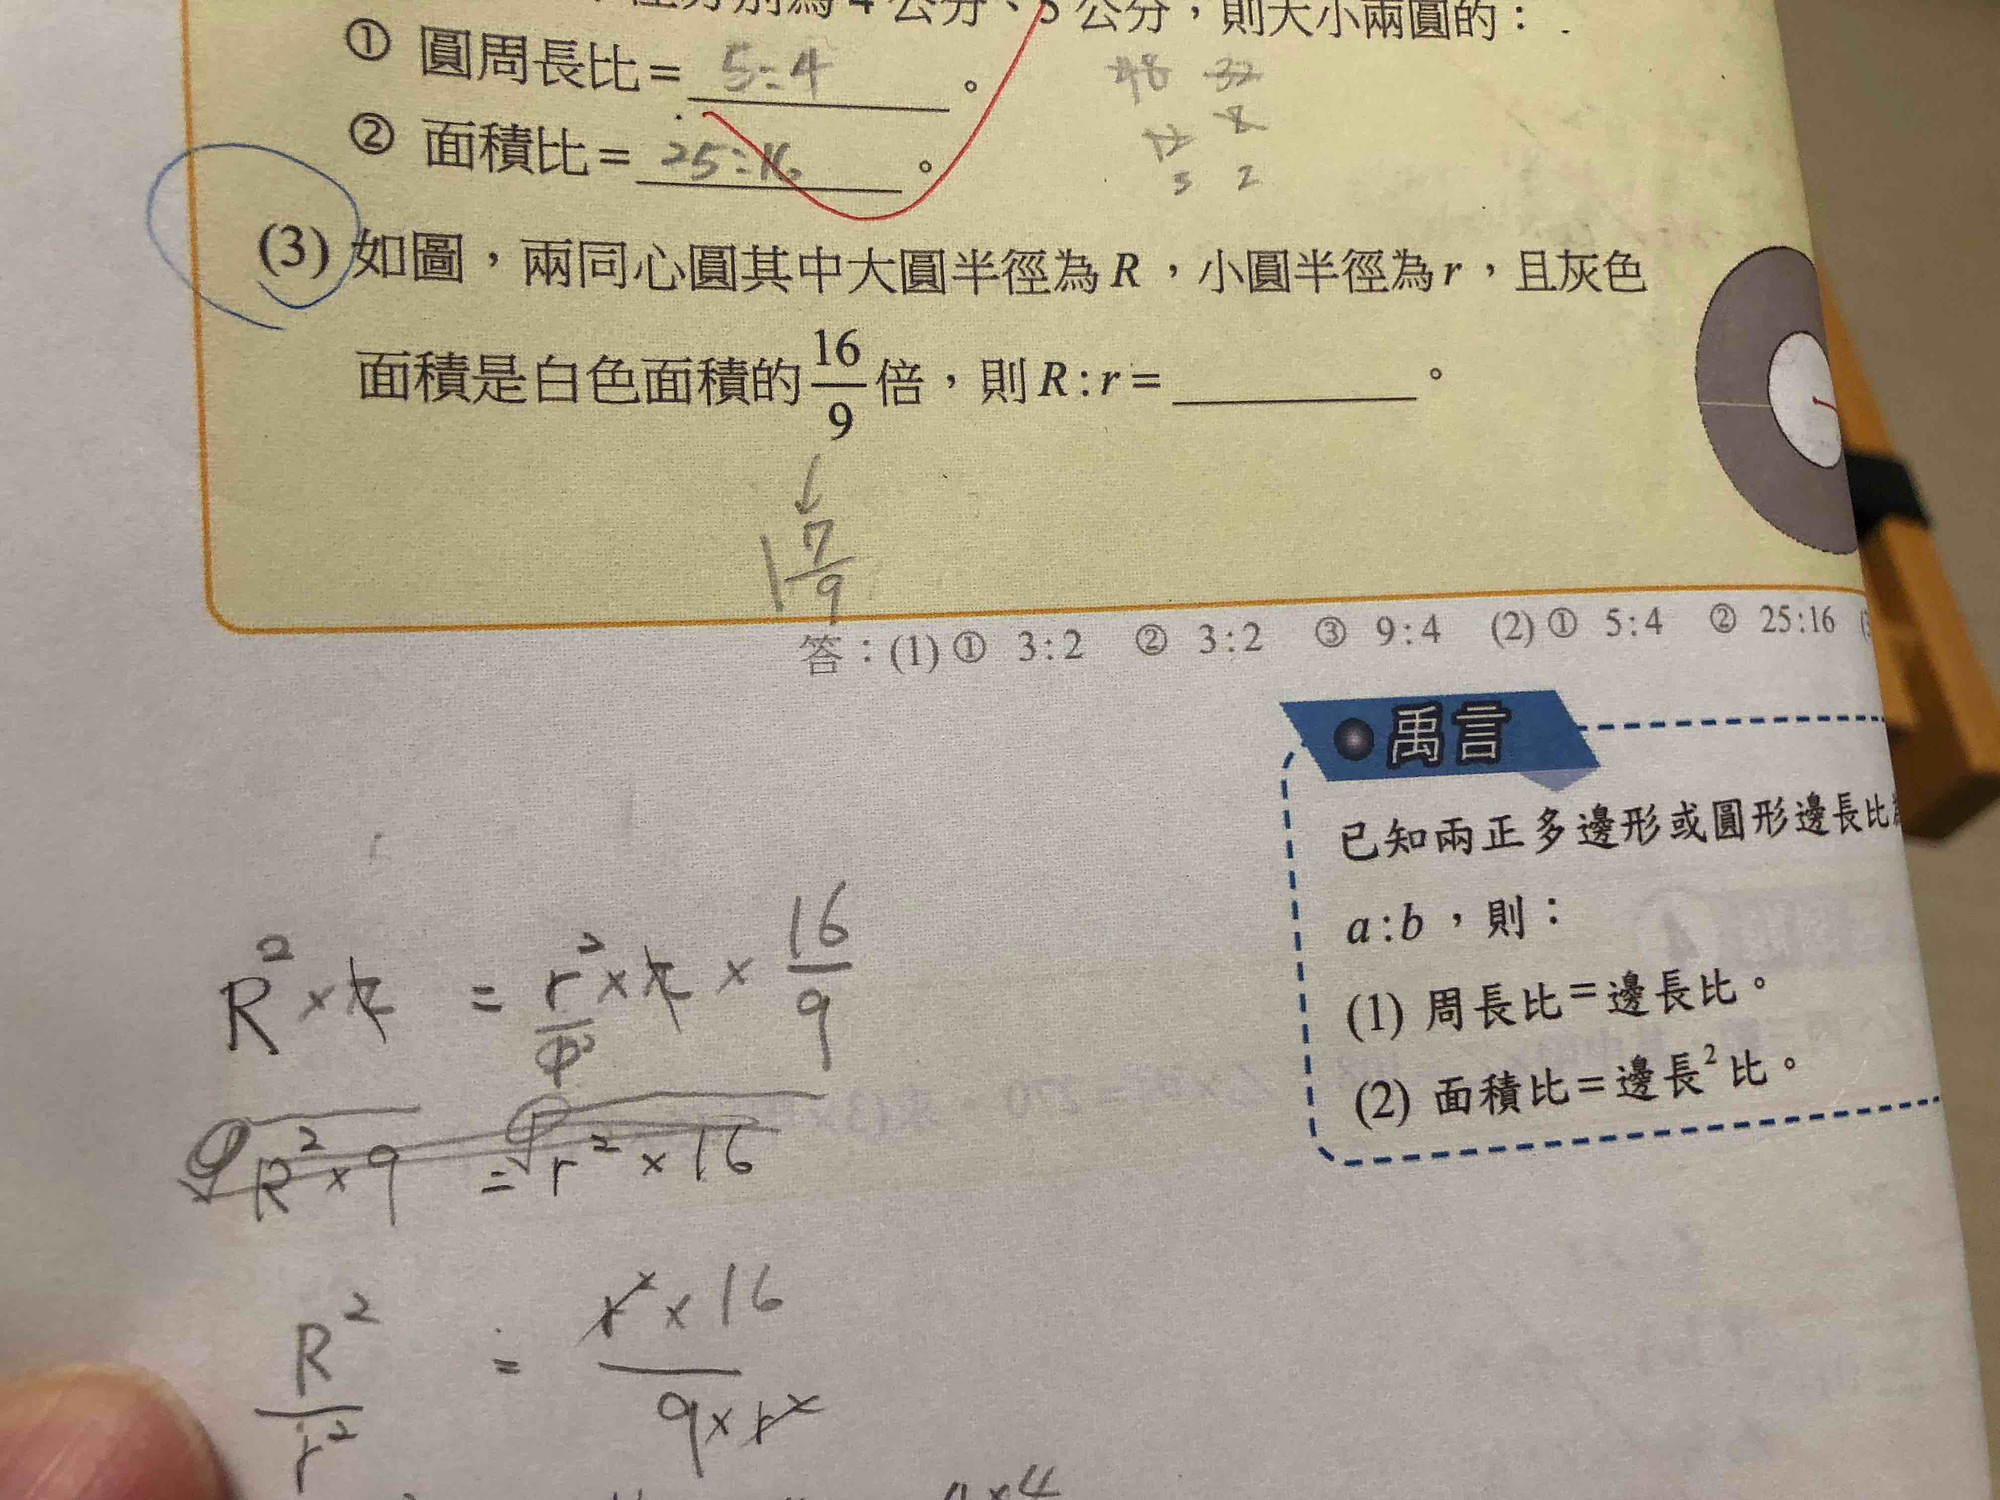 徑分別為4公分、5公分，則大小兩圓的：
① 圓周長比=5:4。
48 32
② 面積比=25:16。
12 8
3 2
(3) 如圖，兩同心圓其中大圓半徑為R，小圓半徑為r，且灰色
面積是白色面積的16/9倍，則R:r=________。
↓
1 7/9
答：(1)① 3:2 ② 3:2 ③ 9:4 (2)① 5:4 ② 25:16
禹言
已知兩正多邊形或圓形邊長比
a:b，則：
(1) 周長比=邊長比。
(2) 面積比=邊長²比。
R²×π = r²×π × 16/9
√R²×9 = √r²×16
R²/r² = r²×16/9×r²
4×4